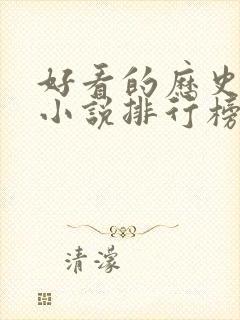 好看的歷史
小說排行榜
清濛